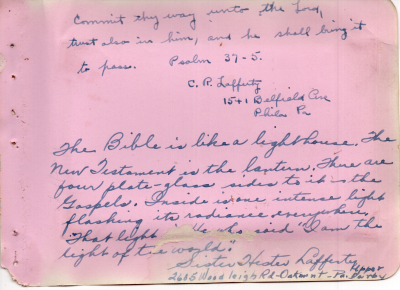 Commit thy way unto the Lord,
trust also in him, and he shall bring it
to pass. Psalm 37-5.
C. P. Lafferty
1541 Belfield Ave
Phila Pa
The Bible is like a lighthouse. The
New Testament is the lantern. There are
four plate-glass sides to it in the
Gospels. Inside is one intense light
flashing its radiance everywhere.
That light is He who said "I am the
light of the world."
Sister Hester Lafferty
2605 Rd-Oakmont-Pa. Upper
Darby